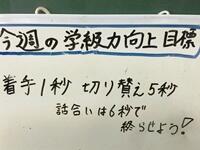 今週の学級力向上目標
着手1秒 切り替え5秒
話合いは6秒で
終らせよう!